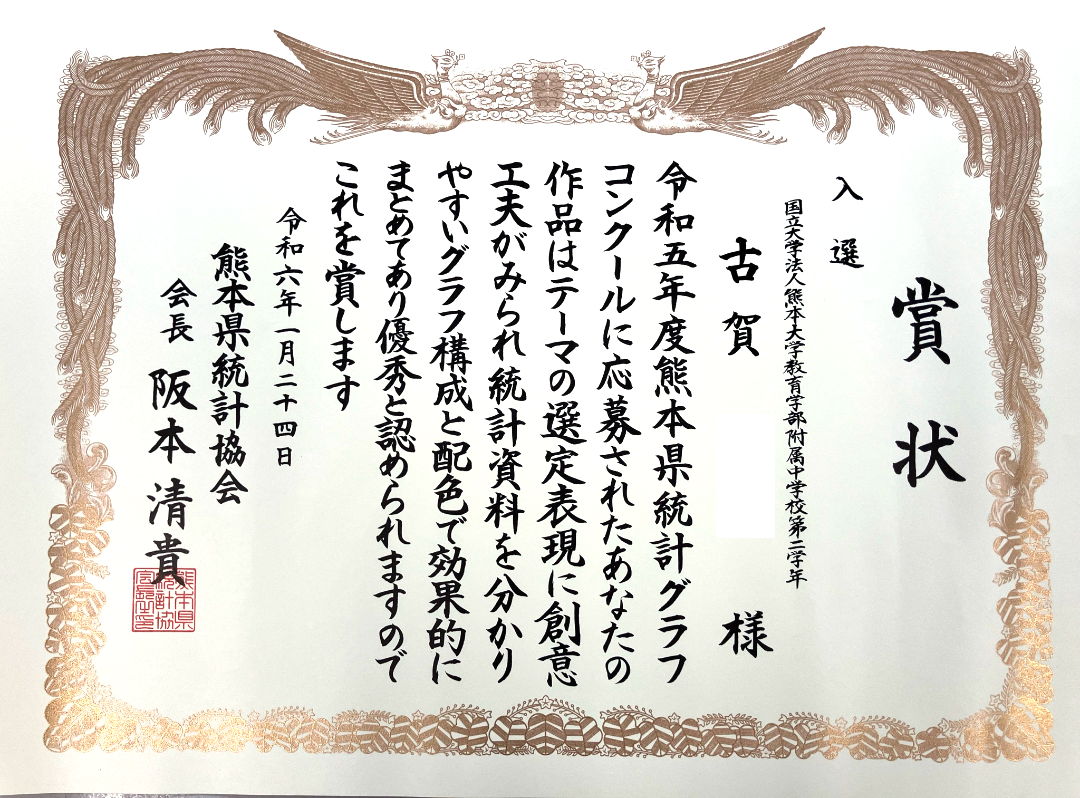 賞状
入選
国立大学法人熊本大学教育学部附属中学校第二学年
古賀 様
令和五年度熊本県統計グラフ
コンクールに応募されたあなたの
作品はテーマの選定表現に創意
工夫がみられ統計資料を分かり
やすいグラフ構成と配色で効果的に
まとめてあり優秀と認められますので
これを賞します
令和六年一月二十四日
熊本県統計協会
会長 阪本清貴
熊本県
統計協
会長之印